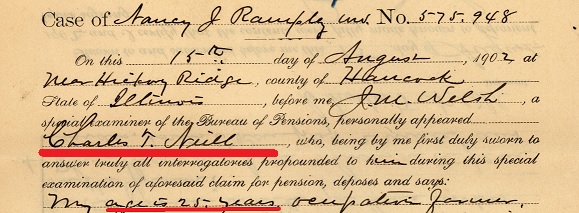 Case of Nancy J Rampley inv. No. 575.948
On this 15th day of August, 1902 at
Near Hickory Ridge, county of Hancock
State of Illinois, before me J. M. Welsh, a
special examiner of the Bureau of Pensions, personally appeared
Charles T. Neill, who, being by me first duly sworn to
answer truly all interrogatories propounded to him during this special
examination of aforesaid claim for pension, deposes and says:
My age is 25 years, occupation farmer,